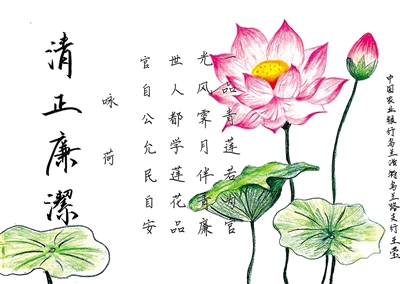 清正廉潔
咏荷
一品青莲若为官
光风霁月伴清廉
世人都学莲花品
官自公允民自安
中国农业银行乌兰浩特乌兰路支行王莹